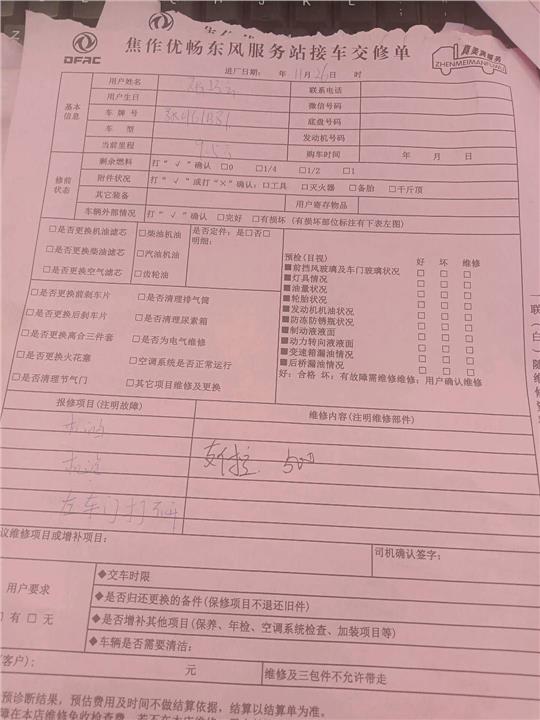 DFAC
焦作优畅东风服务站接车交修单
真美满服务
ZHENMEIMANFUWU
进厂日期： 年 11 月 26 日 时
基本信息
用户姓名
联系电话
用户生日
微信号码
车 牌 号
底盘号码
车 型
发动机号码
当前里程
购车时间 年 月 日
修前状态
剩余燃料 打"√"确认 □0 □1/4 □1/2 □1
附件状况 打"√"或打"×"确认：□工具 □灭火器 □备胎 □千斤顶
其它装备 用户寄存物品
车辆外部情况 打"√"确认 □完好 □有损坏（有损坏部位标注有下表左图）
□是否更换机油滤芯 □柴油机油 是否定件：是□否□
□是否更换柴油滤芯 □汽油机油 明细：
□是否更换空气滤芯 □齿轮油
□是否更换前刹车片 □是否清理排气筒
□是否更换后刹车片 □是否清理尿素箱
□是否更换离合三件套 □是否为电气维修
□是否更换火花塞 □空调系统是否正常运行
□是否清理节气门 □其它项目维修及更换
预检(目视) 好 坏 维修
■前挡风玻璃及车门玻璃状况 □ □ □
■灯具情况 □ □ □
■油量状况 □ □ □
■轮胎状况 □ □ □
■发动机机油状况 □ □ □
■防冻防锈瓶状况 □ □ □
■制动液液面 □ □ □
■动力转向液液面 □ □ □
■变速箱漏油情况 □ □ □
■后桥漏油情况 □ □ □
好：合格 坏：有故障需维修维修：用户确认维修
报修项目(注明故障) 维修内容(注明维修部件)
机油
机滤
左车门打不开
500
议维修项目或增补项目：
司机确认签字：
用户要求
□有 □无
◆交车时限
◆是否归还更换的备件(保修项目不退还旧件)
◆是否增补其他项目(保养、年检、空调系统检查、加装项目等)
◆车辆是否需要清洁：
(客户)： 元 维修及三包件不允许带走
预诊断结果，预估费用及时间不做结算依据，结算以结算单为准。